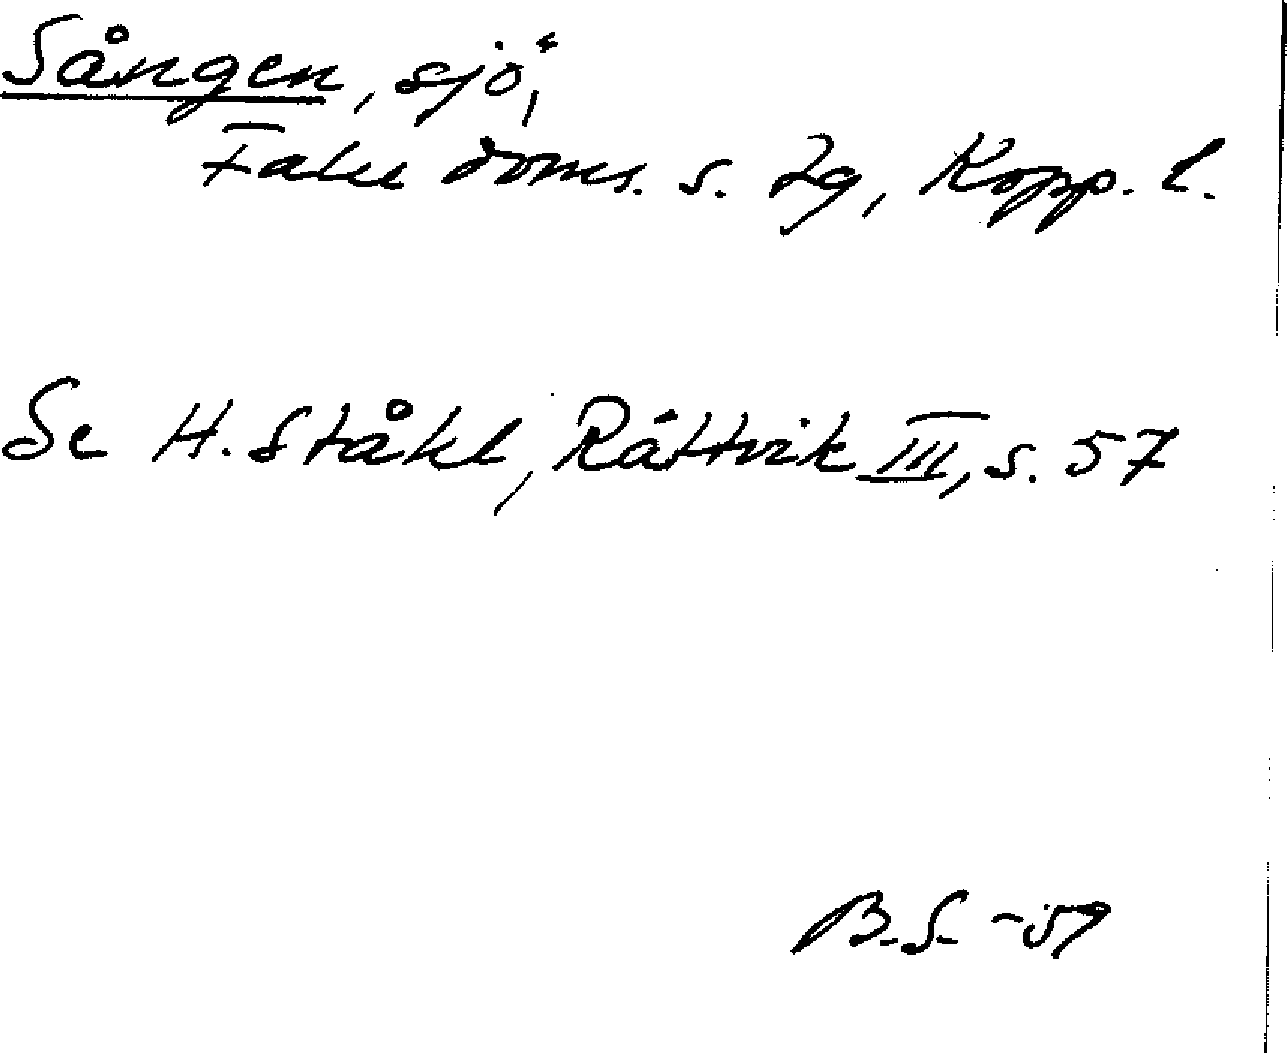 Sången, sjö,
Falu doms. s. tg, Kopp. l.
Se H. Ståhl, Rättvik III, s. 57
B.S. -59